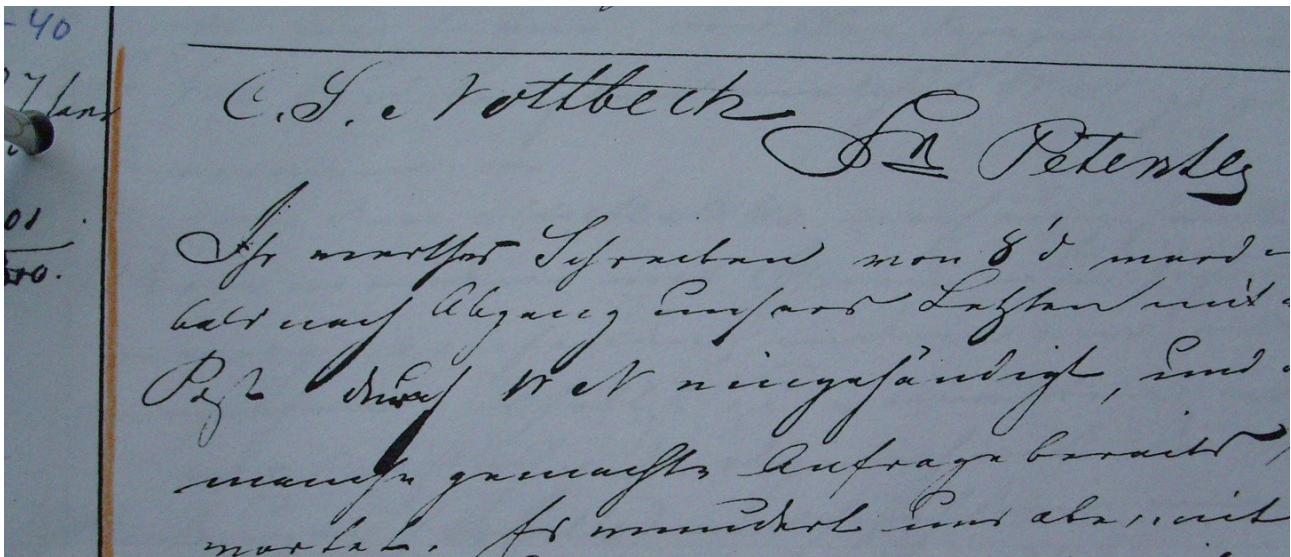 -40
C. S. Nottbeck
Petersbg
Ihr werthes Schreiben von 8' d. wurd
bald nach Abgang unsers Letzten mit
Post durch eingehändigt, und
manche gemachte Anfrage bereits
wortet. Es wundert uns aber, mit